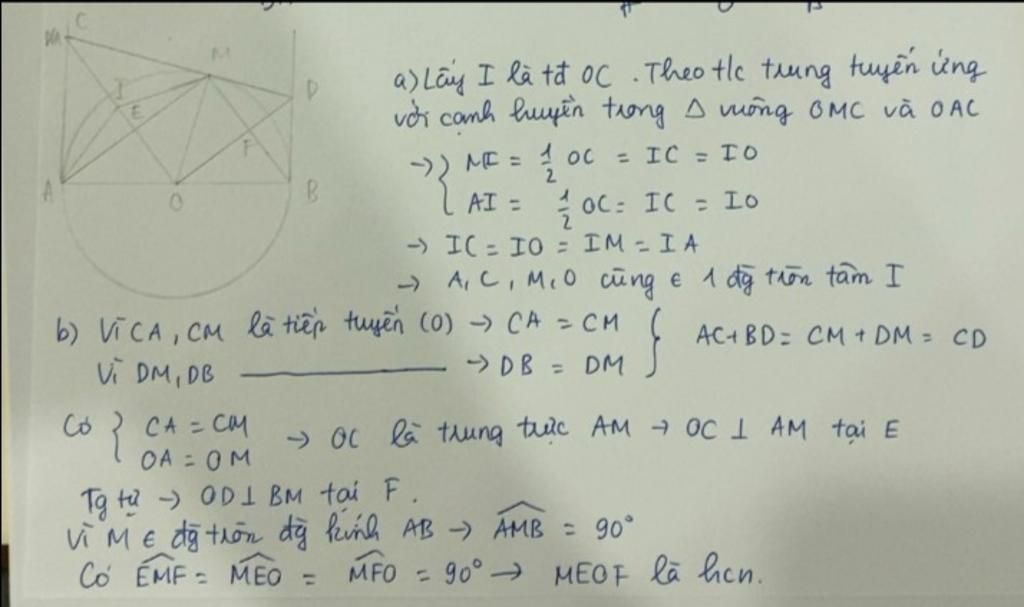 C
M
D
I
E
F
A
O
B
a) Lấy I là tđ OC . Theo t/c trung tuyến ứng
với cạnh huyền trong Δ vuông OMC và OAC
→ { MI = 1/2 OC = IC = IO
AI = 1/2 OC = IC = IO
→ IC = IO = IM = IA
→ A, C, M, O cũng ∈ 1 đg tròn tâm I
b) Vì CA, CM là tiếp tuyến (O) → CA = CM } AC+BD = CM + DM = CD
Vì DM, DB ———— → DB = DM
Có { CA = CM → OC là trung trực AM → OC ⊥ AM tại E
OA = OM
Tg tự → OD ⊥ BM tại F.
Vì M ∈ đg tròn đg kính AB → \widehat{AMB} = 90°
Có \widehat{EMF} = \widehat{MEO} = \widehat{MFO} = 90° → MEOF là hcn.